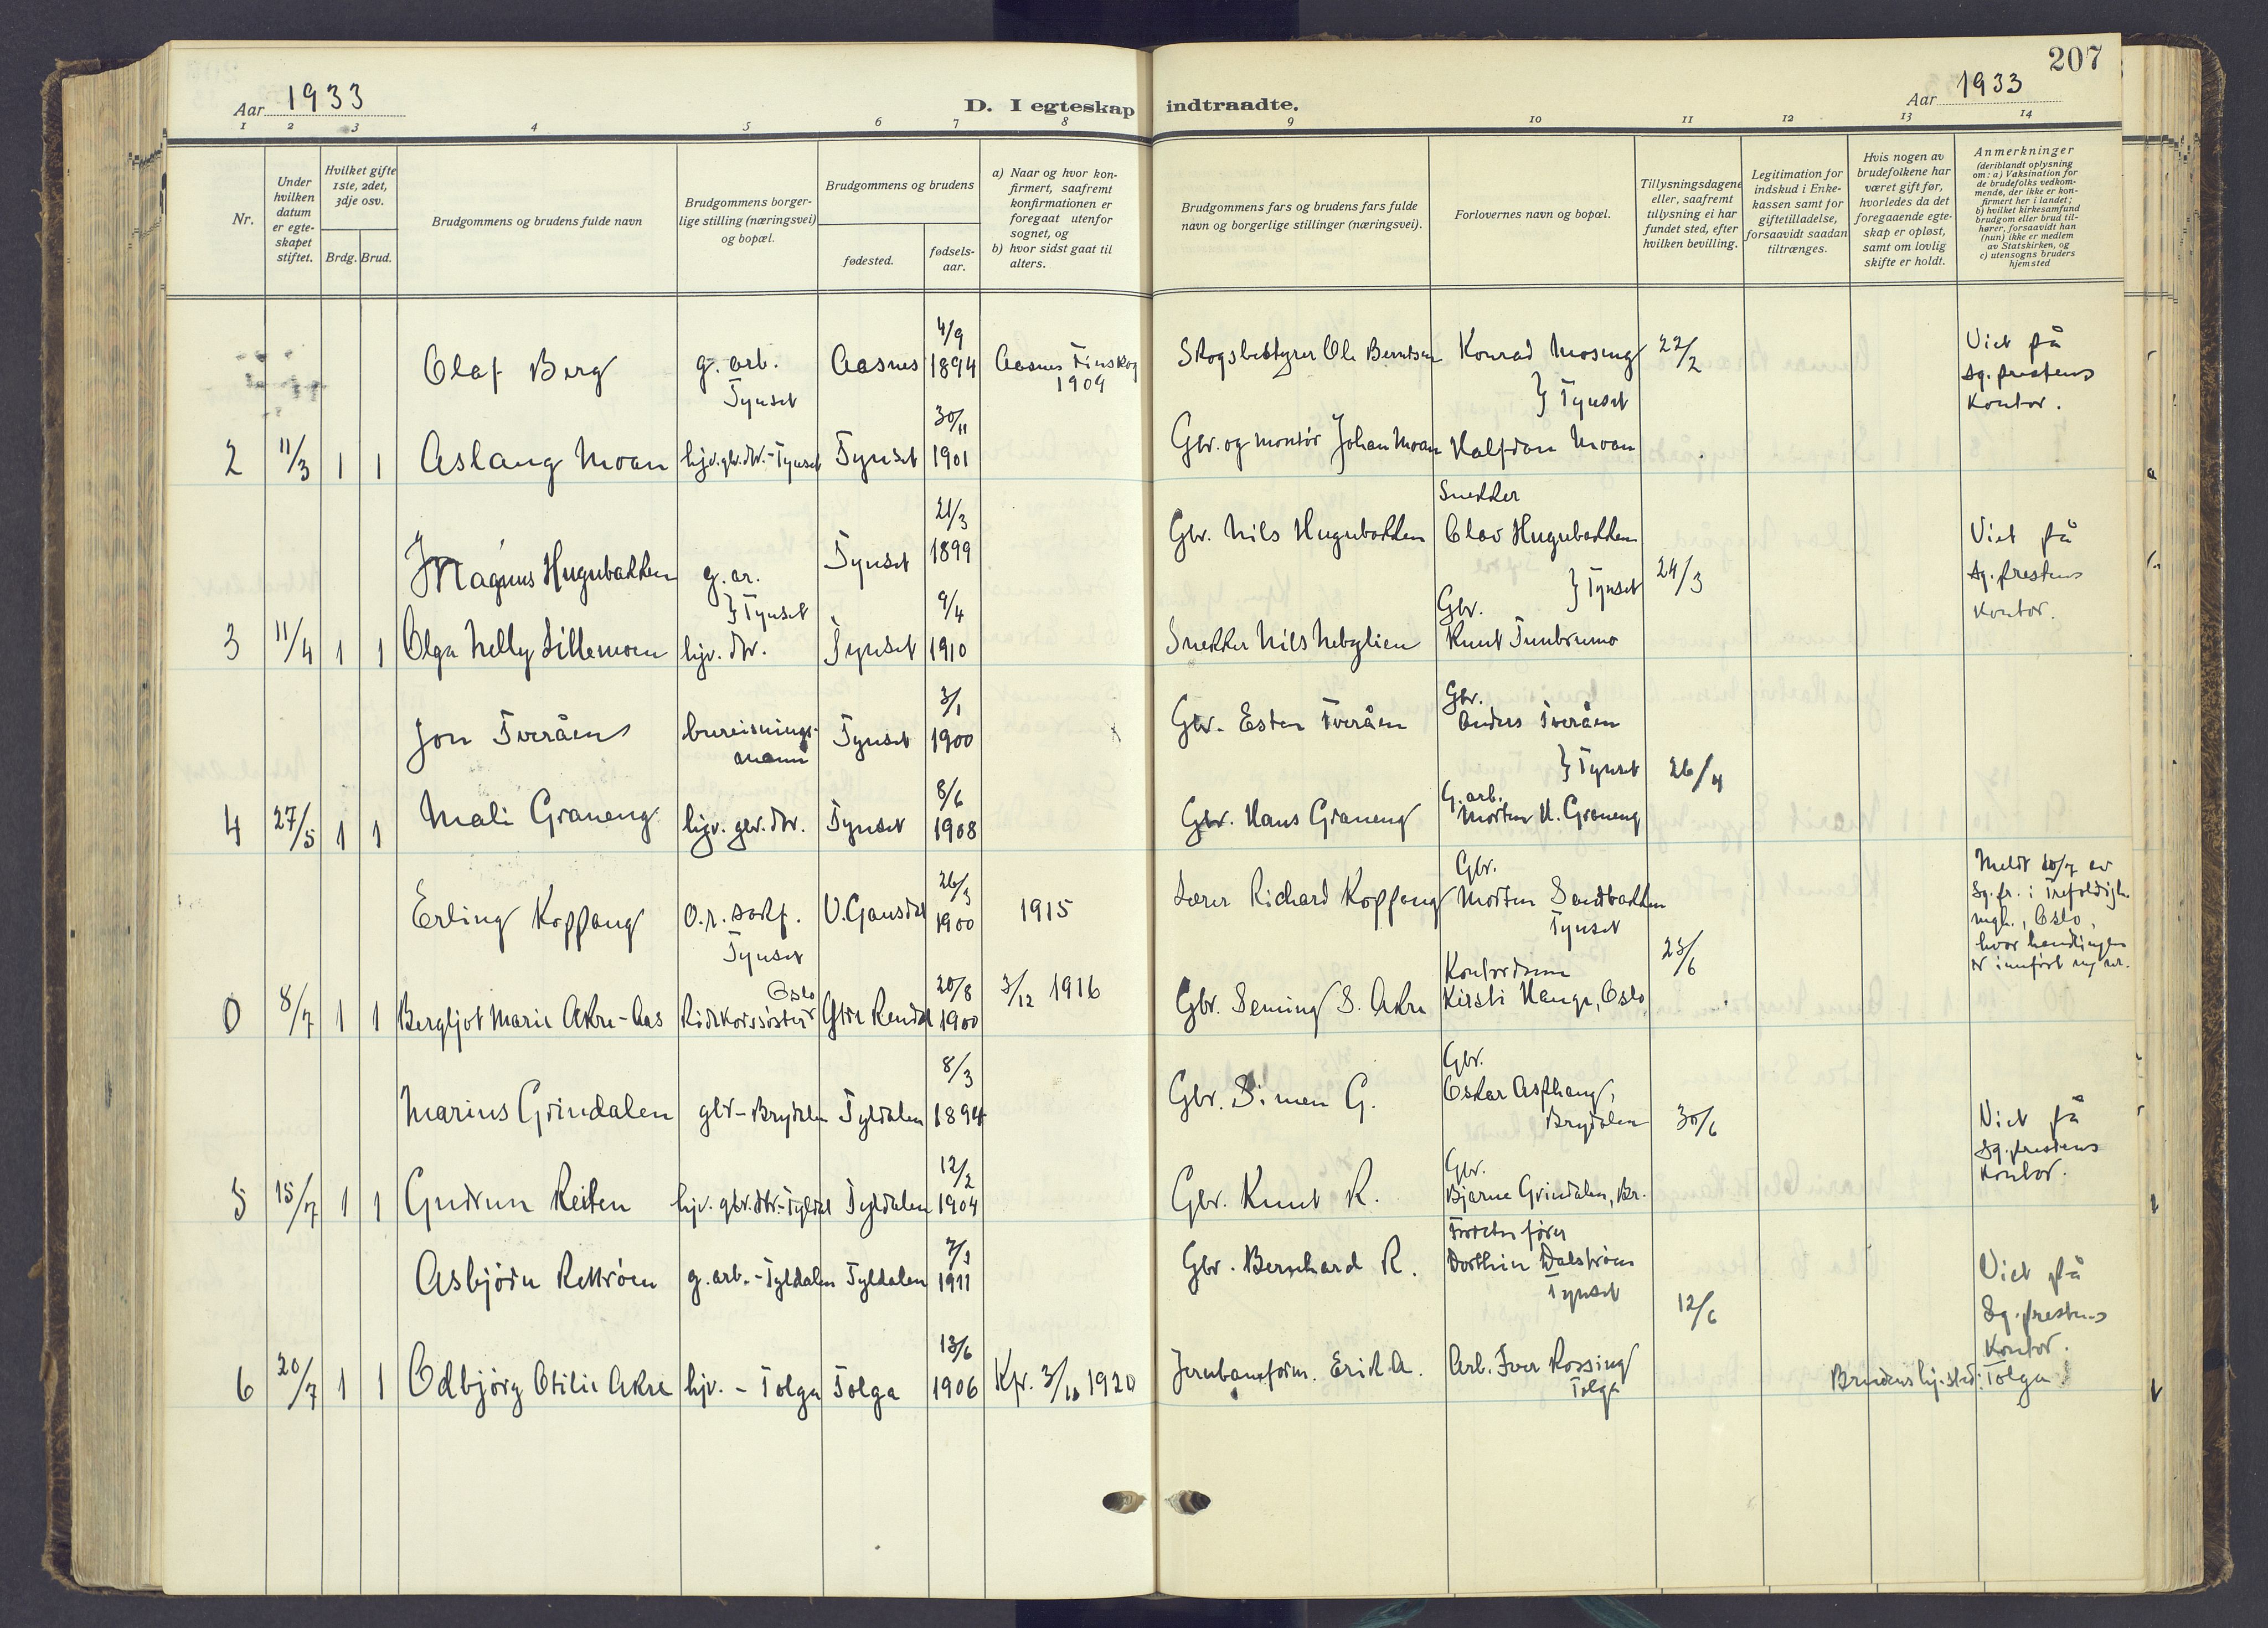 207
Aar 1933
D. I egteskap indtraadte.
Aar 1933
1 2 3 4 5 6 7 8 9 10 11 12 13 14
Nr.
Under hvilken datum er egteskapet stiftet.
Hvilket gifte 1ste, 2det, 3dje osv.
Brdg. Brud.
Brudgommens og brudens fulde navn
Brudgommens borgerlige stilling (næringsvei) og bopæl.
Brudgommens og brudens
fødested.
fødselsaar.
a) Naar og hvor konfirmert, saafremt konfirmationen er foregaat utenfor sognet, og
b) hvor sidst gaat til alters.
Brudgommens fars og brudens fars fulde navn og borgerlige stillinger (næringsvei).
Forlovernes navn og bopæl.
Tillysningsdagene eller, saafremt tillysning ei har fundet sted, efter hvilken bevilling.
Legitimation for indskud i Enkekassen samt for giftetilladelse, forsaavidt saadan tiltrænges.
Hvis nogen av brudefolkene har været gift før, hvorledes da det foregaaende egteskap er opløst, samt om lovlig skifte er holdt.
Anmerkninger (deriblandt oplysning om: a) Vaksination for de brudefolks vedkommende, der ikke er konfirmert her i landet; b) hvilket kirkesamfund brudgom eller brud tilhører, forsaavidt han (hun) ikke er medlem av Statskirken, og c) utensogns bruders hjemsted
Olaf Berg g. arb. Tynset Aasnes 4/9 1894 Aasnes Finskog 1909 Skogsbestyrer Ole Berntsen Konrad Mosing } Tynset 22/2 Viet på sg.prestens kontor.
2 11/3 1 1 Aslaug Moan hjv. gbr. dtr. - Tynset Tynset 30/11 1901 Gbr. og montør Johan Moan Halfdan Moan
J Magnus Hugubakken g. ar. } Tynset Tynset 21/3 1899 Gbr. Nils Hugubakken Snekker Olav Hugubakken } Tynset 24/3 Viet på sg.prestens kontor.
3 11/4 1 1 Olga Nelly Lillemoen hjv. dtr. Tynset 9/4 1910 Snekker Nils Nebylien Gbr. Knut Tunbrumo
Jon Tveråen bureisningsmann Tynset 3/1 1900 Gbr. Esten Tveråen Gbr. Anders Tveråen } Tynset 26/4
4 27/5 1 1 Mali Graneng hjv. gbr. dtr. Tynset 8/6 1908 Gbr. Hans Graneng G. arb. Morten H. Graneng
Erling Koppang O.r. sakf. Tynset V. Gausdal 26/3 1900 1915 Lærer Richard Koppang Gbr. Morten Sandbakken Tynset 23/6 Meldt 10/7 av sg.pr. i Trefoldigh. mgh., Oslo, hvor handlingen er innført
0 8/7 1 1 Bergljot Marie Akre-Aas Oslo Rødekorssøster Øvre Rendal 20/8 1900 3/12 1916 Gbr. Seming S. Akre Kontordame Kirsti Hauge, Oslo
Marius Grindalen gbr - Brydalen Tyldalen 8/3 1894 Gbr. Simen G. Gbr. Oskar Asphaug, Brydalen 30/6 Viet på sg.prestens kontor.
5 15/7 1 1 Gudrun Reiten hjv. gbr. dtr. - Tyldal Tyldalen 12/2 1904 Gbr. Knut R. Gbr. Bjarne Grindalen, Br.
Asbjørn Rektrøen g. arb. - Tyldalen Tyldalen 7/3 1911 Gbr. Bernhard R. Dorthin Dalstrøm Tynset 12/6 Viet på Sg.prestens Kontor.
6 20/7 1 1 Odbjørg Otilie Akre hjv. - Tolga Tolga 13/6 1906 Kfr. 3/10 1920 Jernbaneform. Erik A. Arb. Iver Rossing Tolga Brudens hj.sted: Tolga.